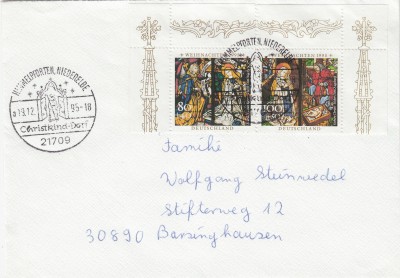 HIMMELPFORTEN, NIEDERELBE
a 19.12. 95-18
Christkind-Dorf
21709
HIMMELPFORTEN, NIEDERELBE
WEIHNACHTEN 1995
80
DEUTSCHLAND
100
DEUTSCHLAND
Familie
Wolfgang Steinriedel
Stifterweg 12
30890 Barsinghausen